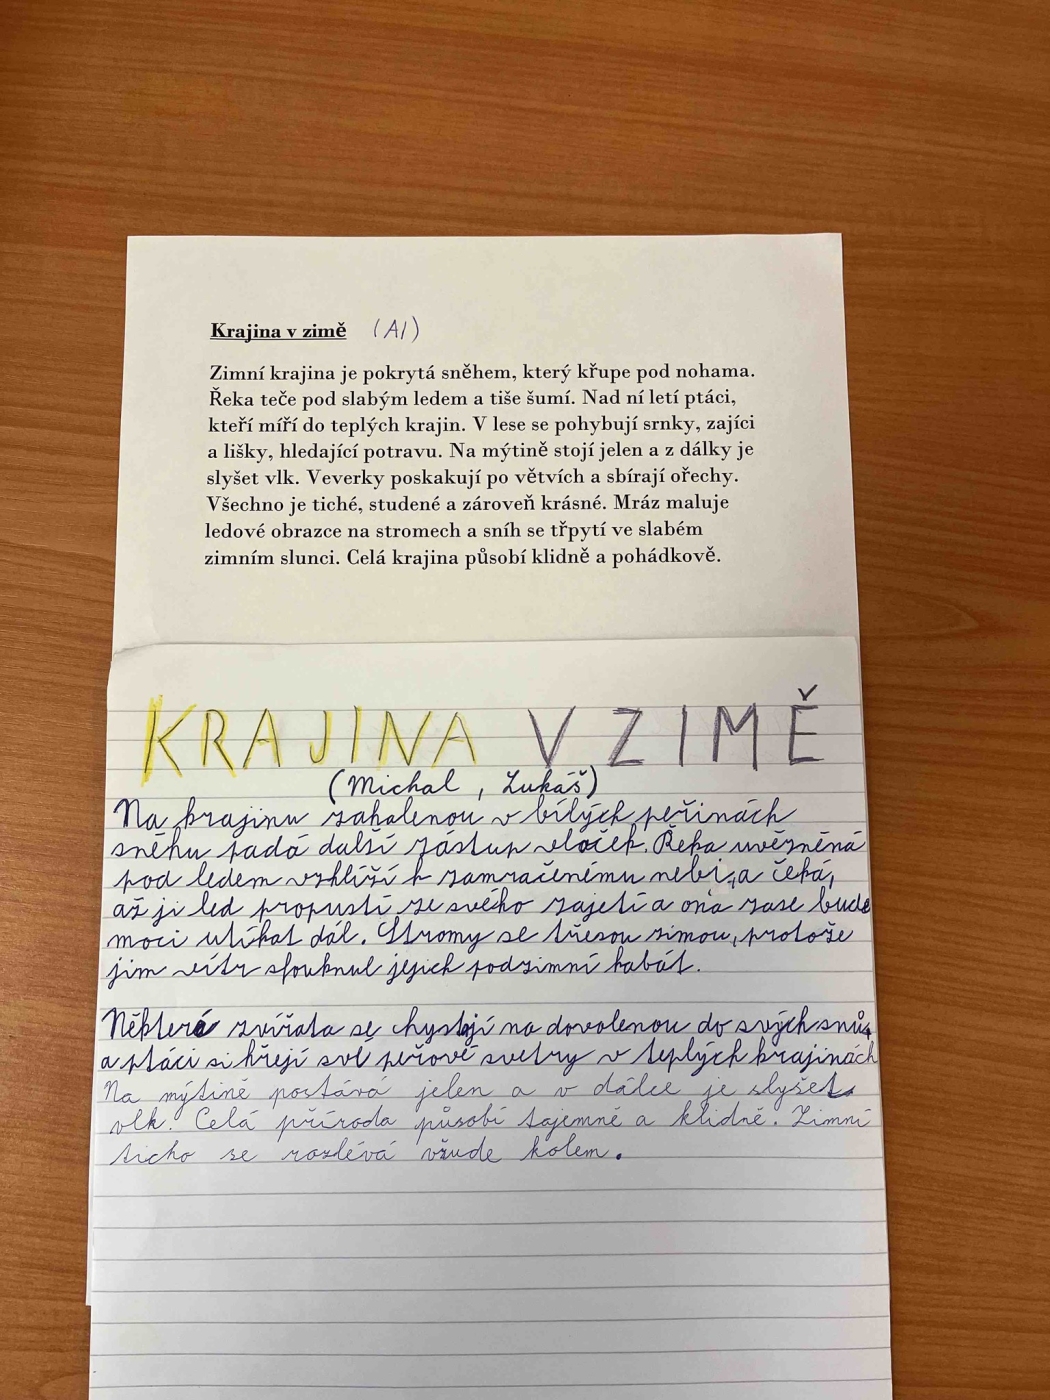 Krajina v zimě (AI)
Zimní krajina je pokrytá sněhem, který křupe pod nohama.
Řeka teče pod slabým ledem a tiše šumí. Nad ní letí ptáci,
kteří míří do teplých krajin. V lese se pohybují srnky, zajíci
a lišky, hledající potravu. Na mýtině stojí jelen a z dálky je
slyšet vlk. Veverky poskakují po větvích a sbírají ořechy.
Všechno je tiché, studené a zároveň krásné. Mráz maluje
ledové obrazce na stromech a sníh se třpytí ve slabém
zimním slunci. Celá krajina působí klidně a pohádkově.
KRAJINA V ZIMĚ
(Michal, Lukáš)
Na krajinu zahalenou v bílých peřinách
sněhu padá další zástup vloček. Řeka uvězněná
pod ledem vzhlíží k zamračenému nebi, a čeká,
až ji led propustí ze svého zajetí a ona zase bude
moci utíkat dál. Stromy se třesou zimou, protože
jim vítr sfouknul jejich podzimní kabát.
Některá zvířata se chystají na dovolenou do svých snů,
a ptáci si hřejí své peřové svetry v teplých krajinách
Na mýtině postává jelen a v dálce je slyšet
vlk. Celá příroda působí tajemně a klidně. Zimní
ticho se rozlévá všude kolem.